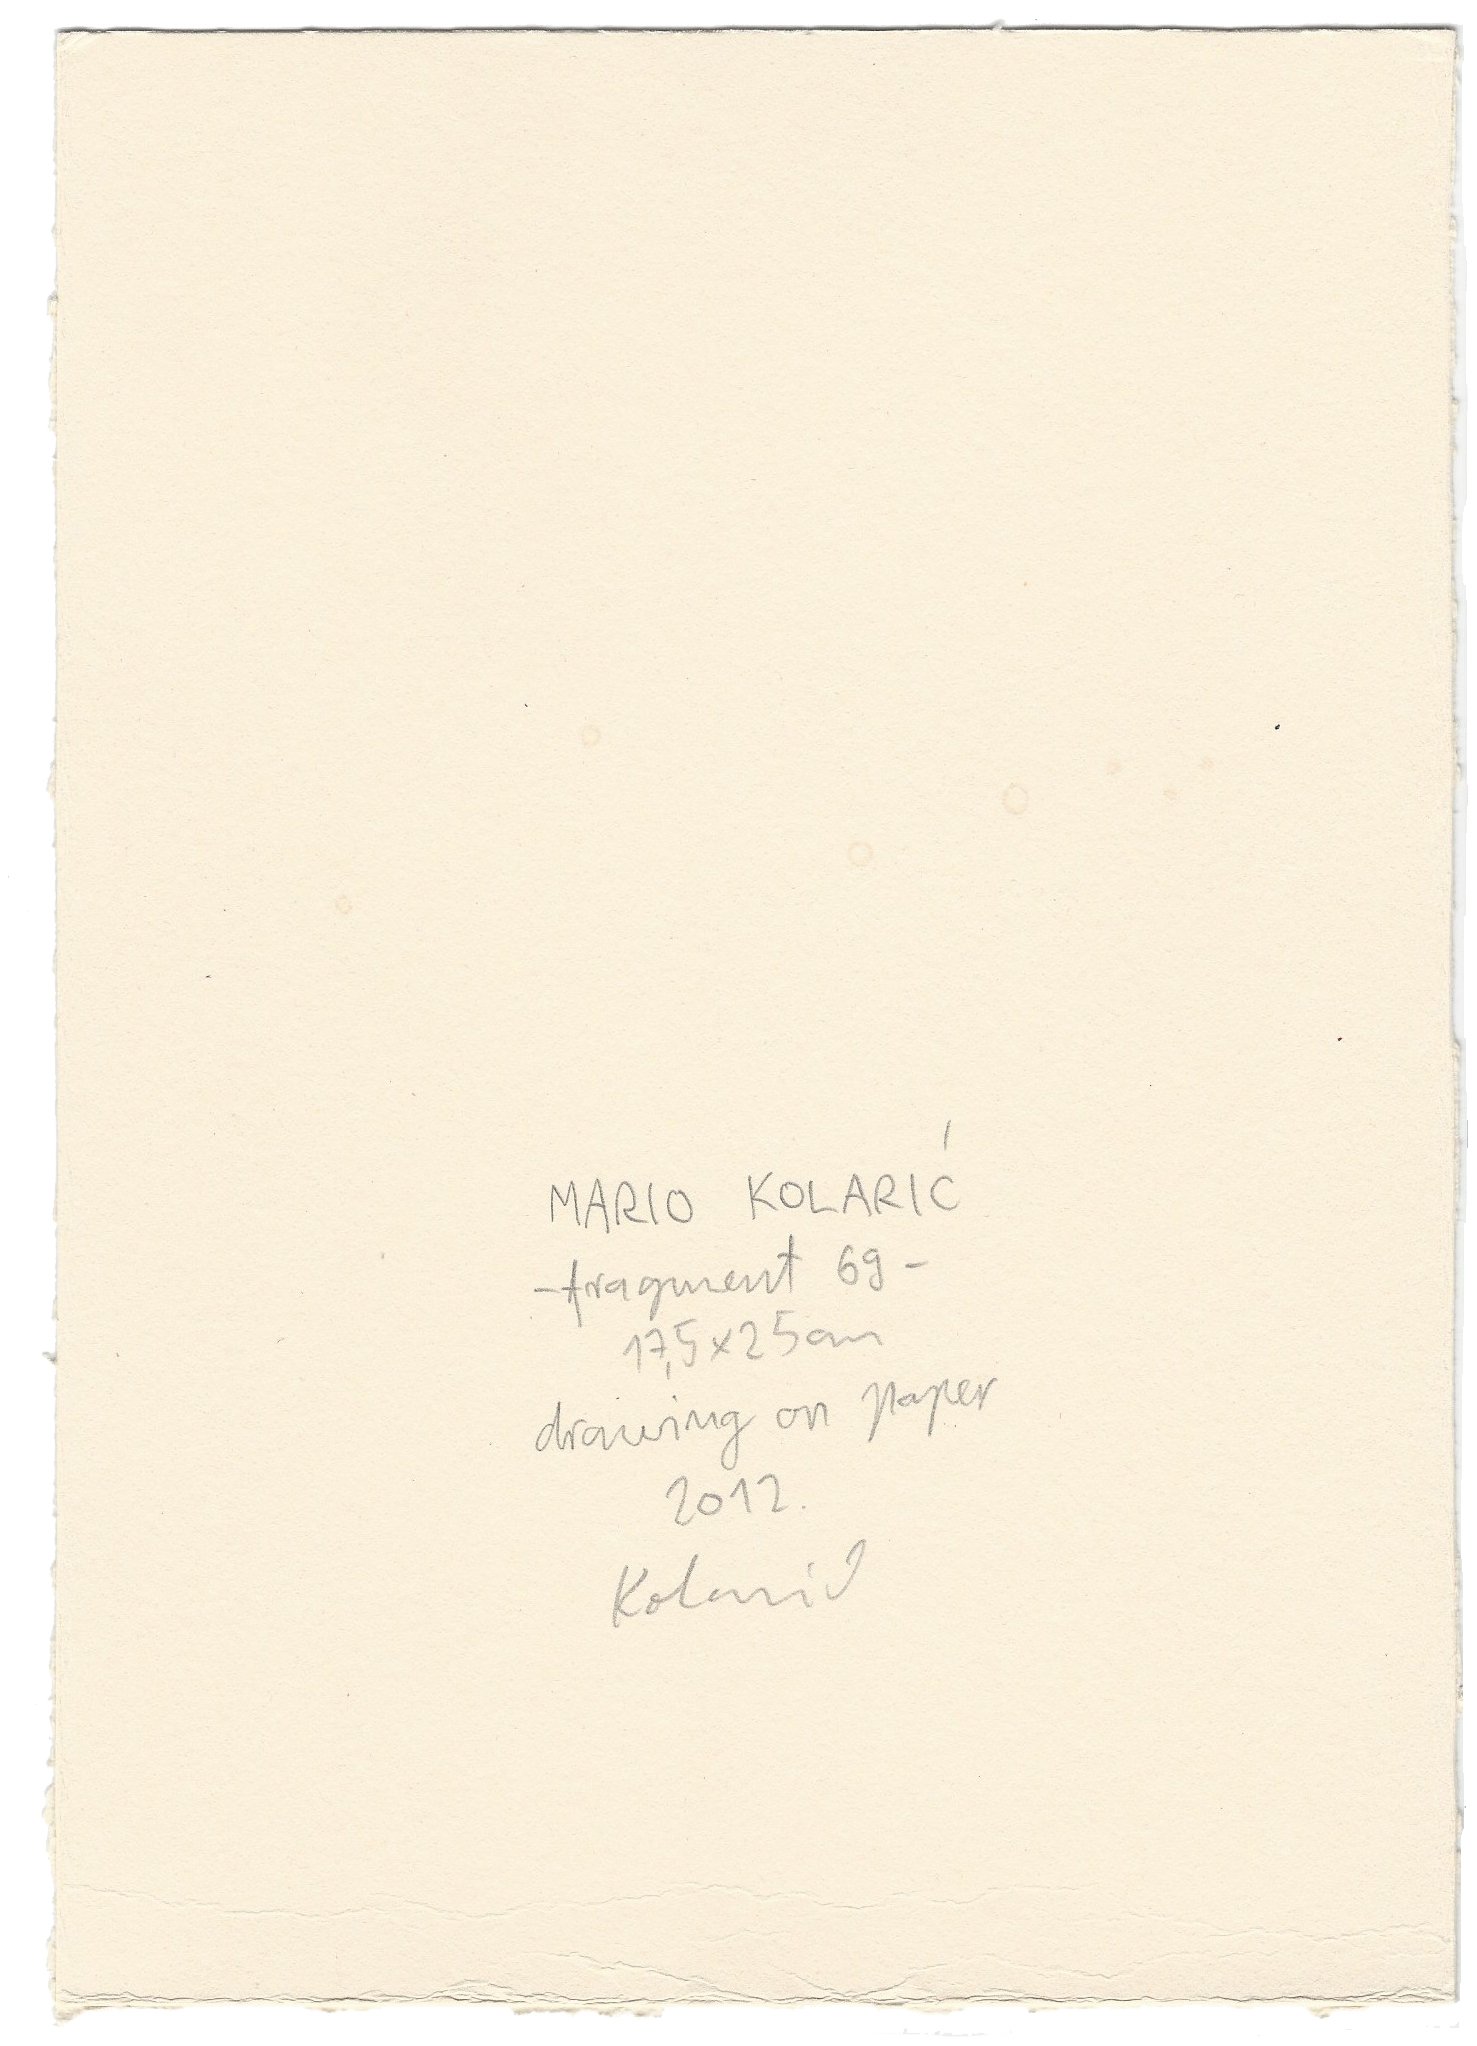 MARIO KOLARIĆ
-fragment 69-
17,5x25cm
drawing on paper
2012.
Kolarić